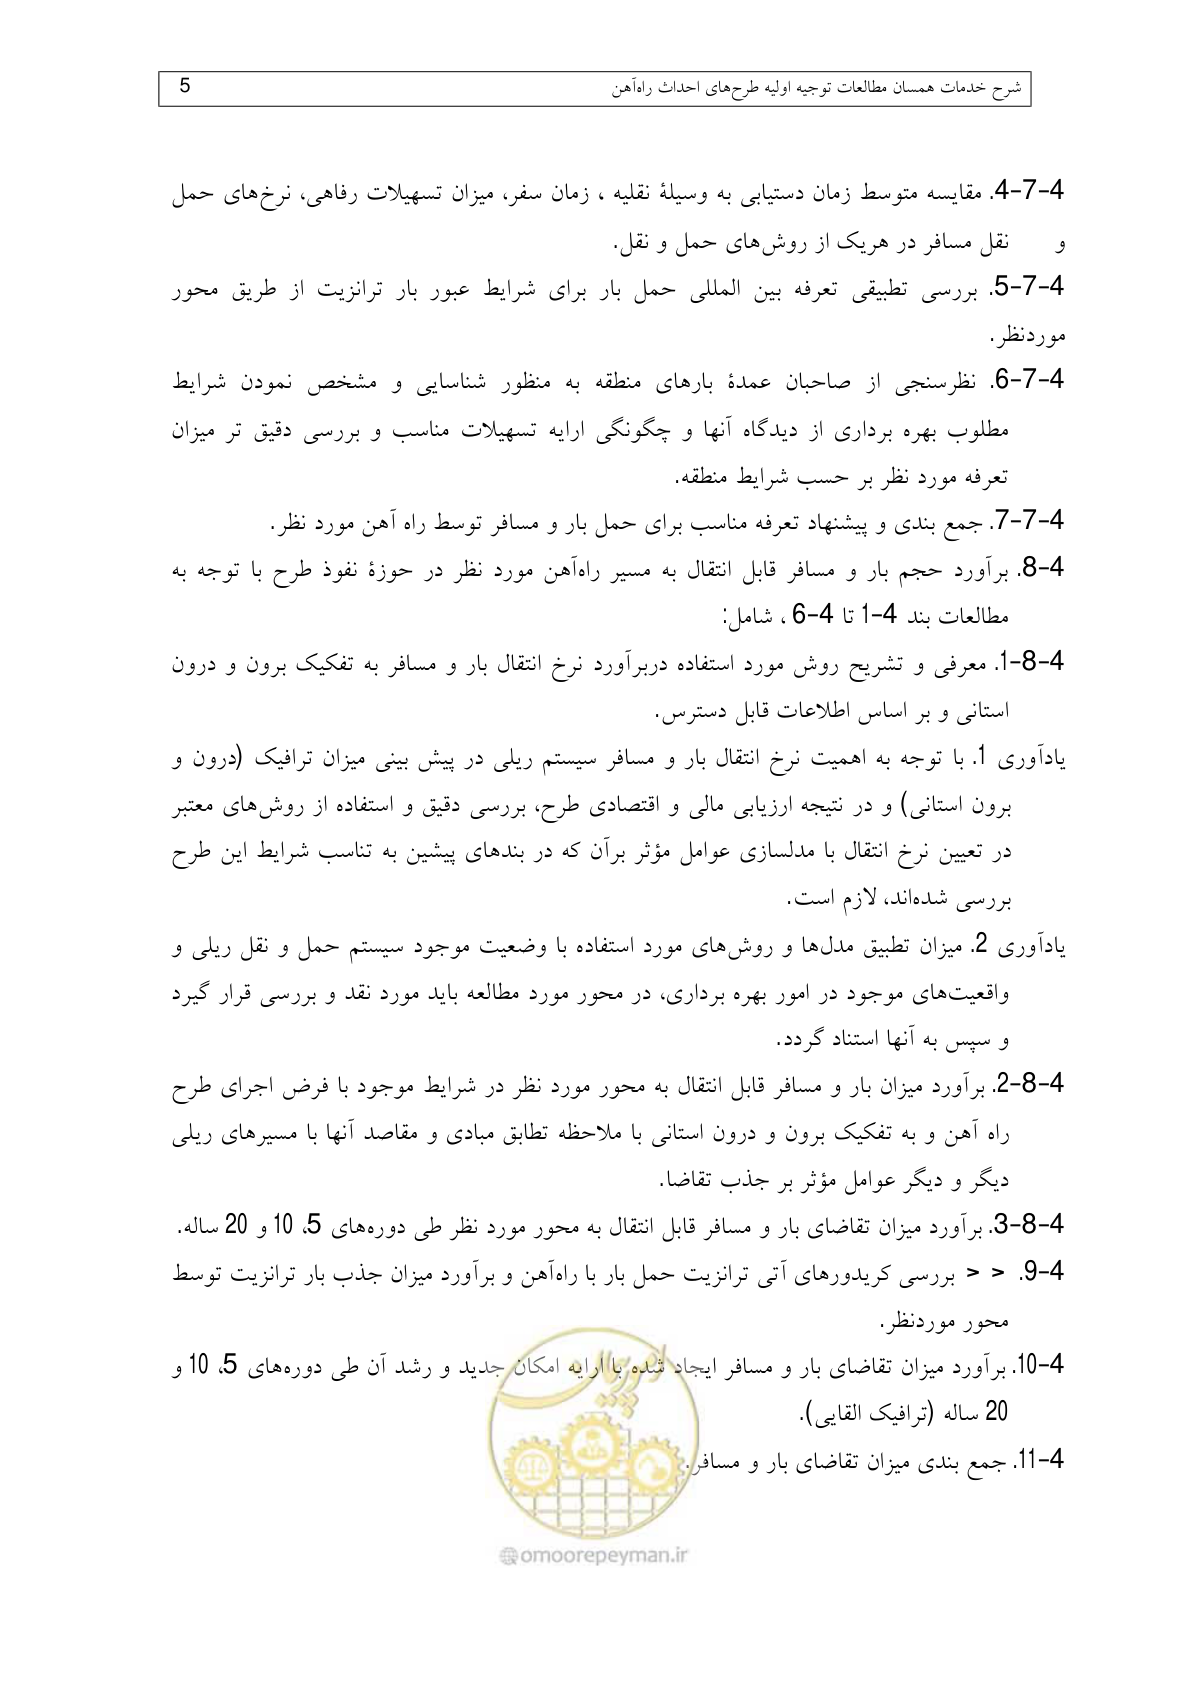 شرح خدمات همسان مطالعات توجیه اولیه طرح‌های احداث راه‌آهن 5
4-7-4. مقایسه متوسط زمان دستیابی به وسیلۀ نقلیه ، زمان سفر، میزان تسهیلات رفاهی، نرخ‌های حمل
و نقل مسافر در هریک از روش‌های حمل و نقل.
4-7-5. بررسی تطبیقی تعرفه بین المللی حمل بار برای شرایط عبور بار ترانزیت از طریق محور
موردنظر.
4-7-6. نظرسنجی از صاحبان عمدۀ بارهای منطقه به منظور شناسایی و مشخص نمودن شرایط
مطلوب بهره برداری از دیدگاه آنها و چگونگی ارایه تسهیلات مناسب و بررسی دقیق تر میزان
تعرفه مورد نظر بر حسب شرایط منطقه.
4-7-7. جمع بندی و پیشنهاد تعرفه مناسب برای حمل بار و مسافر توسط راه آهن مورد نظر.
4-8. برآورد حجم بار و مسافر قابل انتقال به مسیر راه‌آهن مورد نظر در حوزۀ نفوذ طرح با توجه به
مطالعات بند 4-1 تا 4-6 ، شامل:
4-8-1. معرفی و تشریح روش مورد استفاده دربرآورد نرخ انتقال بار و مسافر به تفکیک برون و درون
استانی و بر اساس اطلاعات قابل دسترس.
یادآوری 1. با توجه به اهمیت نرخ انتقال بار و مسافر سیستم ریلی در پیش بینی میزان ترافیک (درون و
برون استانی) و در نتیجه ارزیابی مالی و اقتصادی طرح، بررسی دقیق و استفاده از روش‌های معتبر
در تعیین نرخ انتقال با مدلسازی عوامل مؤثر برآن که در بندهای پیشین به تناسب شرایط این طرح
بررسی شده‌اند، لازم است.
یادآوری 2. میزان تطبیق مدل‌ها و روش‌های مورد استفاده با وضعیت موجود سیستم حمل و نقل ریلی و
واقعیت‌های موجود در امور بهره برداری، در محور مورد مطالعه باید مورد نقد و بررسی قرار گیرد
و سپس به آنها استناد گردد.
4-8-2. برآورد میزان بار و مسافر قابل انتقال به محور مورد نظر در شرایط موجود با فرض اجرای طرح
راه آهن و به تفکیک برون و درون استانی با ملاحظه تطابق مبادی و مقاصد آنها با مسیرهای ریلی
دیگر و دیگر عوامل مؤثر بر جذب تقاضا.
4-8-3. برآورد میزان تقاضای بار و مسافر قابل انتقال به محور مورد نظر طی دوره‌های 5، 10 و 20 ساله.
4-9. < < بررسی کریدورهای آتی ترانزیت حمل بار با راه‌آهن و برآورد میزان جذب بار ترانزیت توسط
محور موردنظر.
4-10. برآورد میزان تقاضای بار و مسافر ایجاد شده با ارایه امکان جدید و رشد آن طی دوره‌های 5، 10 و
20 ساله (ترافیک القایی).
4-11. جمع بندی میزان تقاضای بار و مسافر.
امور پیمان
omoorepeyman.ir